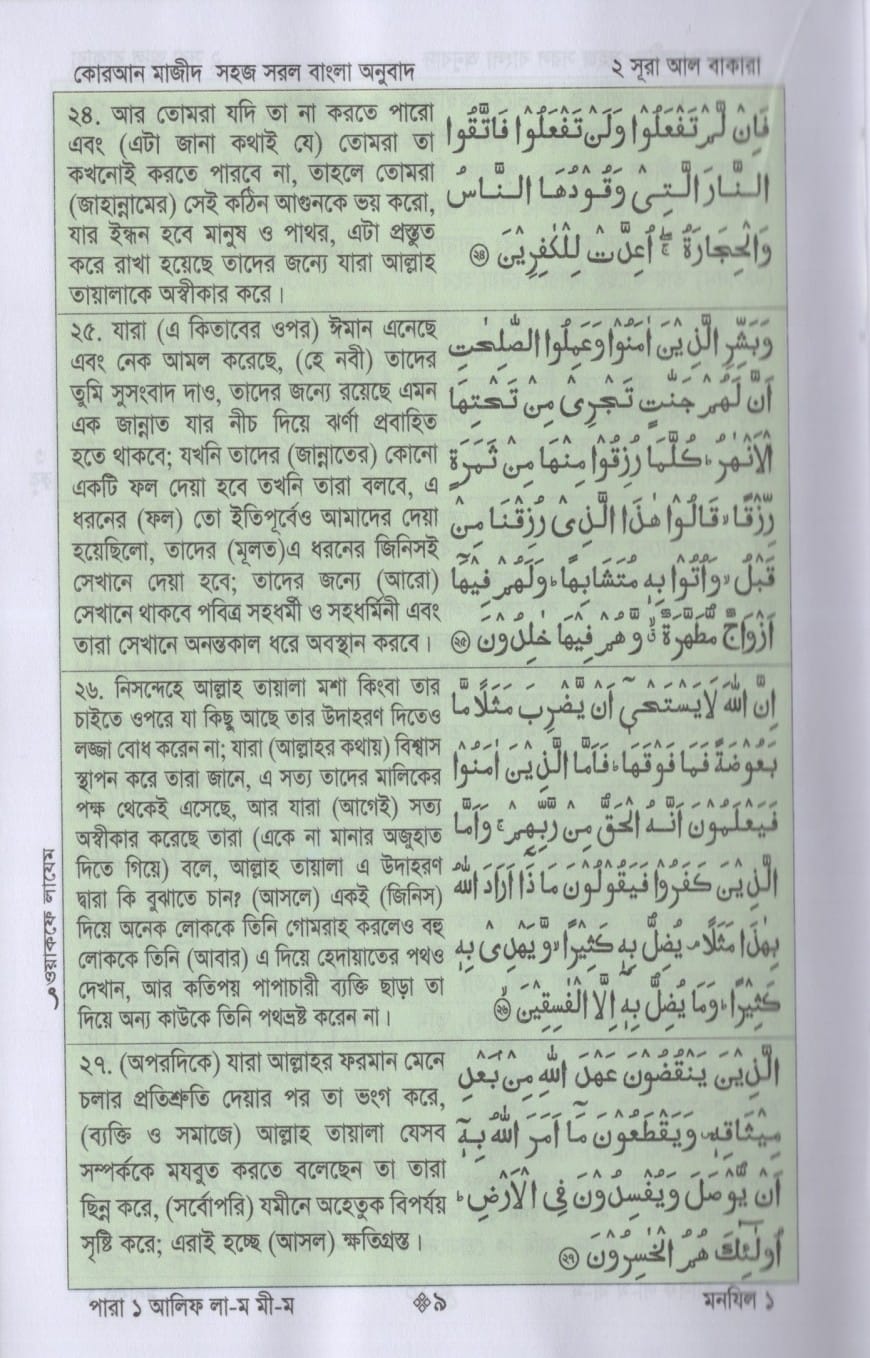 কোরআন মাজীদ সহজ সরল বাংলা অনুবাদ
২ সূরা আল বাকারা
২৪. আর তোমরা যদি তা না করতে পারো
এবং (এটা জানা কথাই যে) তোমরা তা
কখনোই করতে পারবে না, তাহলে তোমরা
(জাহান্নামের) সেই কঠিন আগুনকে ভয় করো,
যার ইন্ধন হবে মানুষ ও পাথর, এটা প্রস্তুত
করে রাখা হয়েছে তাদের জন্যে যারা আল্লাহ
তায়ালাকে অস্বীকার করে।
فَاِنْ لَّمْ تَفْعَلُوْا وَلَنْ تَفْعَلُوْا فَاتَّقُوا
النَّارَ الَّتِىْ وَقُوْدُهَا النَّاسُ
وَالْحِجَارَةُ ۚ اُعِدَّتْ لِلْكٰفِرِيْنَ ۝٢٤
২৫. যারা (এ কিতাবের ওপর) ঈমান এনেছে
এবং নেক আমল করেছে, (হে নবী) তাদের
তুমি সুসংবাদ দাও, তাদের জন্যে রয়েছে এমন
এক জান্নাত যার নীচ দিয়ে ঝর্ণা প্রবাহিত
হতে থাকবে; যখনি তাদের (জান্নাতের) কোনো
একটি ফল দেয়া হবে তখনি তারা বলবে, এ
ধরনের (ফল) তো ইতিপূর্বেও আমাদের দেয়া
হয়েছিলো, তাদের (মূলত)এ ধরনের জিনিসই
সেখানে দেয়া হবে; তাদের জন্যে (আরো)
সেখানে থাকবে পবিত্র সহধর্মী ও সহধর্মিনী এবং
তারা সেখানে অনন্তকাল ধরে অবস্থান করবে।
وَبَشِّرِ الَّذِيْنَ اٰمَنُوْا وَعَمِلُوا الصّٰلِحٰتِ
اَنَّ لَهُمْ جَنّٰتٍ تَجْرِىْ مِنْ تَحْتِهَا
الْاَنْهٰرُ ؕ كُلَّمَا رُزِقُوْا مِنْهَا مِنْ ثَمَرَةٍ
رِّزْقًا ۙ قَالُوْا هٰذَا الَّذِىْ رُزِقْنَا مِنْ
قَبْلُ ۙ وَاُتُوْا بِهٖ مُتَشَابِهًا ؕ وَلَهُمْ فِيْهَاۤ
اَزْوَاجٌ مُّطَهَّرَةٌ ۙ وَّهُمْ فِيْهَا خٰلِدُوْنَ ۝٢٥
২৬. নিসন্দেহে আল্লাহ তায়ালা মশা কিংবা তার
চাইতে ওপরে যা কিছু আছে তার উদাহরণ দিতেও
লজ্জা বোধ করেন না; যারা (আল্লাহর কথায়) বিশ্বাস
স্থাপন করে তারা জানে, এ সত্য তাদের মালিকের
পক্ষ থেকেই এসেছে, আর যারা (আগেই) সত্য
অস্বীকার করেছে তারা (একে না মানার অজুহাত
দিতে গিয়ে) বলে, আল্লাহ তায়ালা এ উদাহরণ
দ্বারা কি বুঝাতে চান? (আসলে) একই (জিনিস)
দিয়ে অনেক লোককে তিনি গোমরাহ করলেও বহু
লোককে তিনি (আবার) এ দিয়ে হেদায়াতের পথও
দেখান, আর কতিপয় পাপাচারী ব্যক্তি ছাড়া তা
দিয়ে অন্য কাউকে তিনি পথভ্রষ্ট করেন না।
اِنَّ اللّٰهَ لَا يَسْتَحْىٖۤ اَنْ يَّضْرِبَ مَثَلًا مَّا
بَعُوْضَةً فَمَا فَوْقَهَا ؕ فَاَمَّا الَّذِيْنَ اٰمَنُوْا
فَيَعْلَمُوْنَ اَنَّهُ الْحَقُّ مِنْ رَّبِّهِمْ ۚ وَاَمَّا
الَّذِيْنَ كَفَرُوْا فَيَقُوْلُوْنَ مَاذَاۤ اَرَادَ اللّٰهُ
بِهٰذَا مَثَلًا ۘ يُضِلُّ بِهٖ كَثِيْرًا ۙ وَّيَهْدِىْ بِهٖ
كَثِيْرًا ؕ وَمَا يُضِلُّ بِهٖۤ اِلَّا الْفٰسِقِيْنَ ۝٢٦
ওয়াকফে লাযেম
২৭. (অপরদিকে) যারা আল্লাহর ফরমান মেনে
চলার প্রতিশ্রুতি দেয়ার পর তা ভংগ করে,
(ব্যক্তি ও সমাজে) আল্লাহ তায়ালা যেসব
সম্পর্ককে মযবুত করতে বলেছেন তা তারা
ছিন্ন করে, (সর্বোপরি) যমীনে অহেতুক বিপর্যয়
সৃষ্টি করে; এরাই হচ্ছে (আসল) ক্ষতিগ্রস্ত।
الَّذِيْنَ يَنْقُضُوْنَ عَهْدَ اللّٰهِ مِنْۢ بَعْدِ
مِيْثَاقِهٖ ۪ وَيَقْطَعُوْنَ مَاۤ اَمَرَ اللّٰهُ بِهٖۤ
اَنْ يُّوْصَلَ وَيُفْسِدُوْنَ فِى الْاَرْضِ ؕ
اُولٰٓئِكَ هُمُ الْخٰسِرُوْنَ ۝٢٧
পারা ১ আলিফ লা-ম মী-ম
৯
মনযিল ১